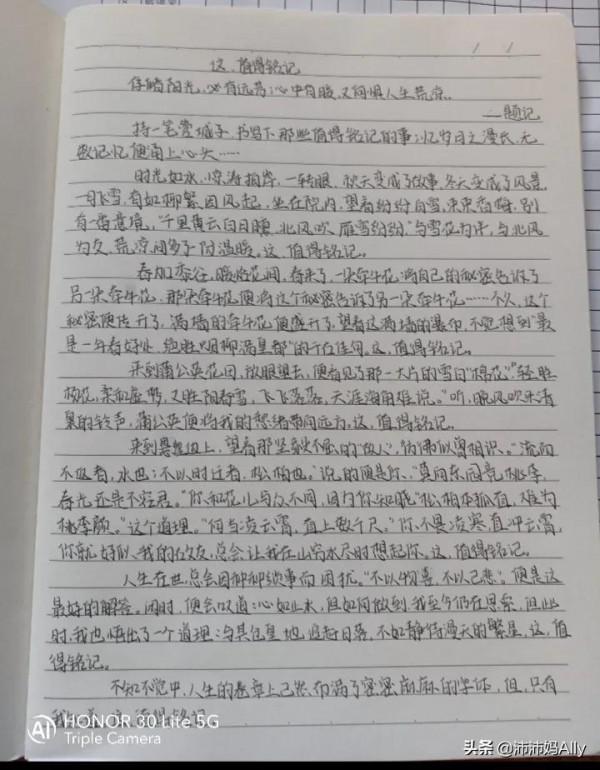 这，值得铭记
保暗阳光，必有远芳；心中有暖，又何惧人生荒凉。
——题记
持一笔书写下那些值得铭记的事；忆岁月之漫长，无
数记忆便涌上心头……
时光如水，惊涛拍岸，一转眼，秋天变成了故事，冬天变成了风景，
一日飞雪，有如柳絮因风起，坐在院内，望着纷纷白雪，束束香梅，别
有一番意境，“千里黄云白日曛，北风吹雁雪纷纷。”与雪花为伴，与北风
为友，荒凉间多了份温暖。这，值得铭记。
春加黍谷，暖临花涧，春来了，一朵牵牛花将自己的秘密告诉了
另一朵牵牛花，那朵牵牛花便将这个秘密告诉了另一朵牵牛花……不久，这个
秘密便传开了，满墙的牵牛花便盛开了，望着这满墙的瀑布，不觉想到“最
是一年春好处，绝胜烟柳满皇都”的千古佳句。这，值得铭记。
来到蒲公英花园，放眼望去，便看见了那一大片的雪白“棉花”，“轻胜
杨花，柔和虚梦，又胜阳春雪，飞飞落落，天涯海角难说。”听，晚风吹来清
臭的铃声，蒲公英便将我的愁绪带向远方，这，值得铭记。
来到悬崖边上，望着那坚毅不屈的“故人”，仿佛似曾相识。“流而
不返者，水也；不以时迁者，松柏也。”说的便是你，“莫向东园竞桃李，
春光还是不容君。”你和花儿与众不同，因为你知晓“松柏本孤直，难为
桃李颜。”这个道理。“何当凌云霄，直上数千尺。”你不畏凌寒直冲云霄，
你就好似我的故友，总会让我在山穷水尽时想起你。这，值得铭记。
人生在世，总会因种种琐事而困扰。“不以物喜，不以己悲”。便是这
最好的解答。闲时，便会叹道：心如止水，但如何做到，我至今仍在思索，但此
时，我也悟出了一个道理：与其仓皇地追赶日落，不如静待漫天的繁星，这，值
得铭记。
不知不觉中，人生的卷章上已然布满了密密麻麻的字体，但，只有
我
HONOR 30 Lite 5G
Triple Camera
头条 @沛沛妈Ally